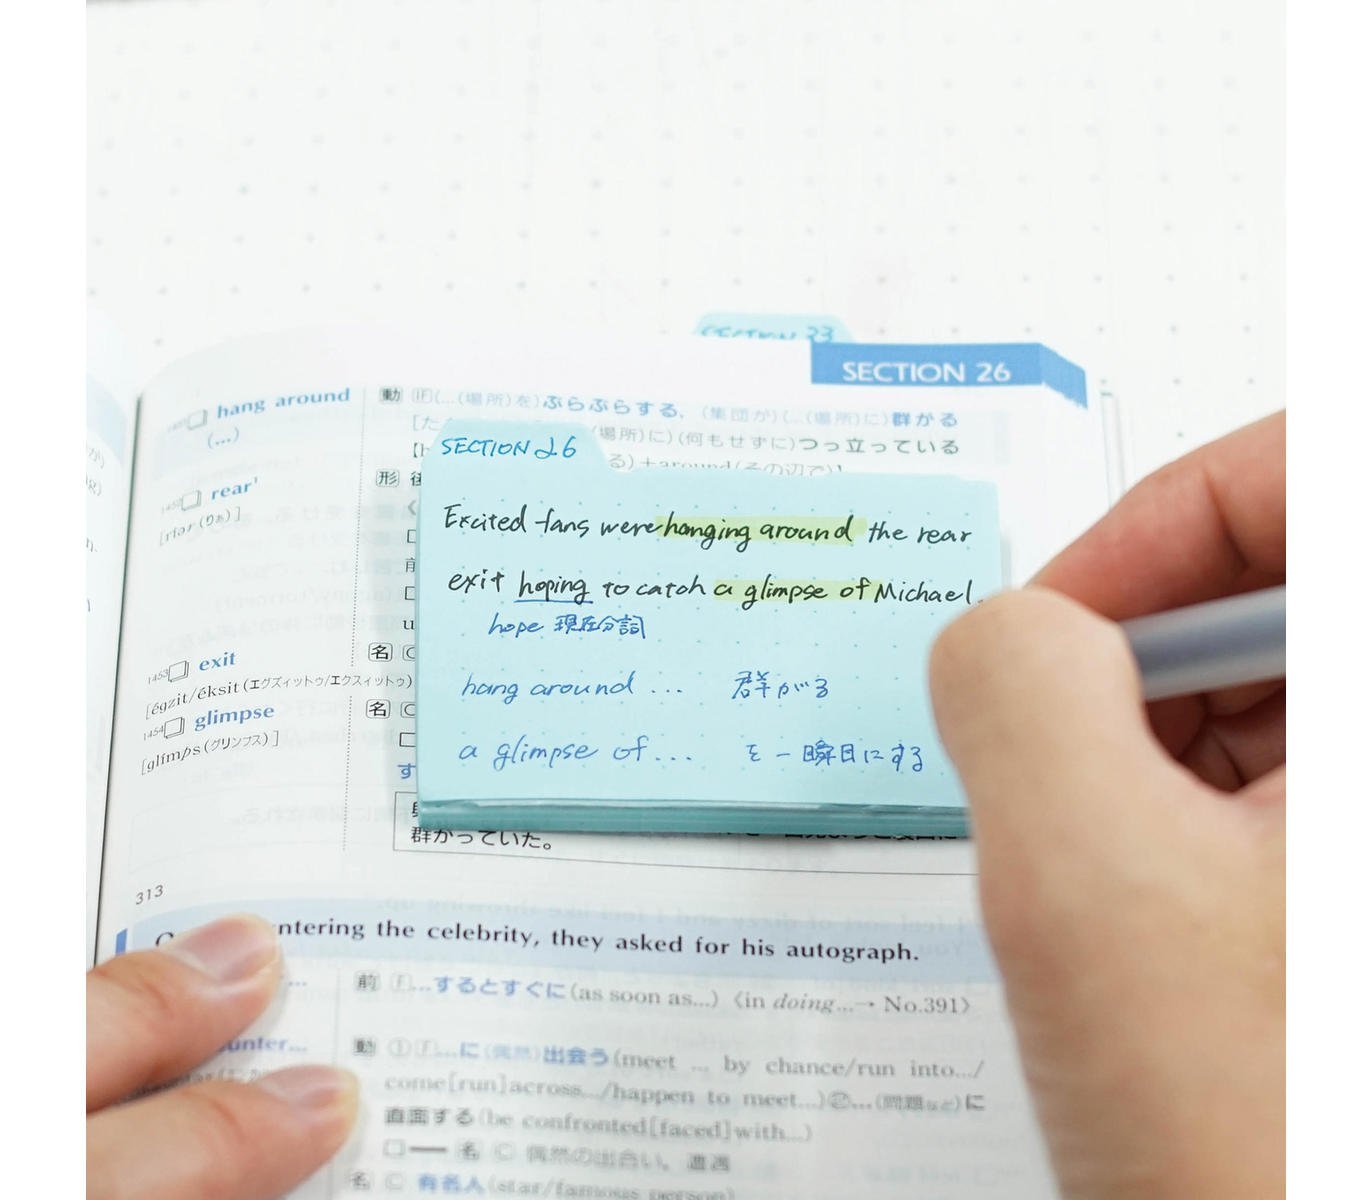 SECTION 33
SECTION 26
1451 hang around
(...)
動 F(...(場所)を)ぶらぶらする、(集団が)(...(場所)に)群がる
(場所)に)(何もせずに)つっ立っている
る)+around(その辺で)
1452 rear¹
形
[ríər(リぁ)]
1453 exit
名
[égzit/éksit(エグズィットゥ/エクスィットゥ)
1454 glimpse
名
[glímps(グリンプス)]
群がっていた。
SECTION 26
Excited fans were hanging around the rear
exit hoping to catch a glimpse of Michael.
hope 現在分詞
hang around ... 群がる
a glimpse of ... を一瞬目にする
313
ntering the celebrity, they asked for his autograph.
前 F...するとすぐに(as soon as...)〈in doing...→ No.391〉
unter...
動 ①F...に(偶然)出会う(meet ... by chance/run into.../
come[run]across.../happen to meet...)②...(問題など)に
直面する(be confronted[faced]with...)
名 C 偶然の出会い、遭遇
名 C 有名人(star/famous person)